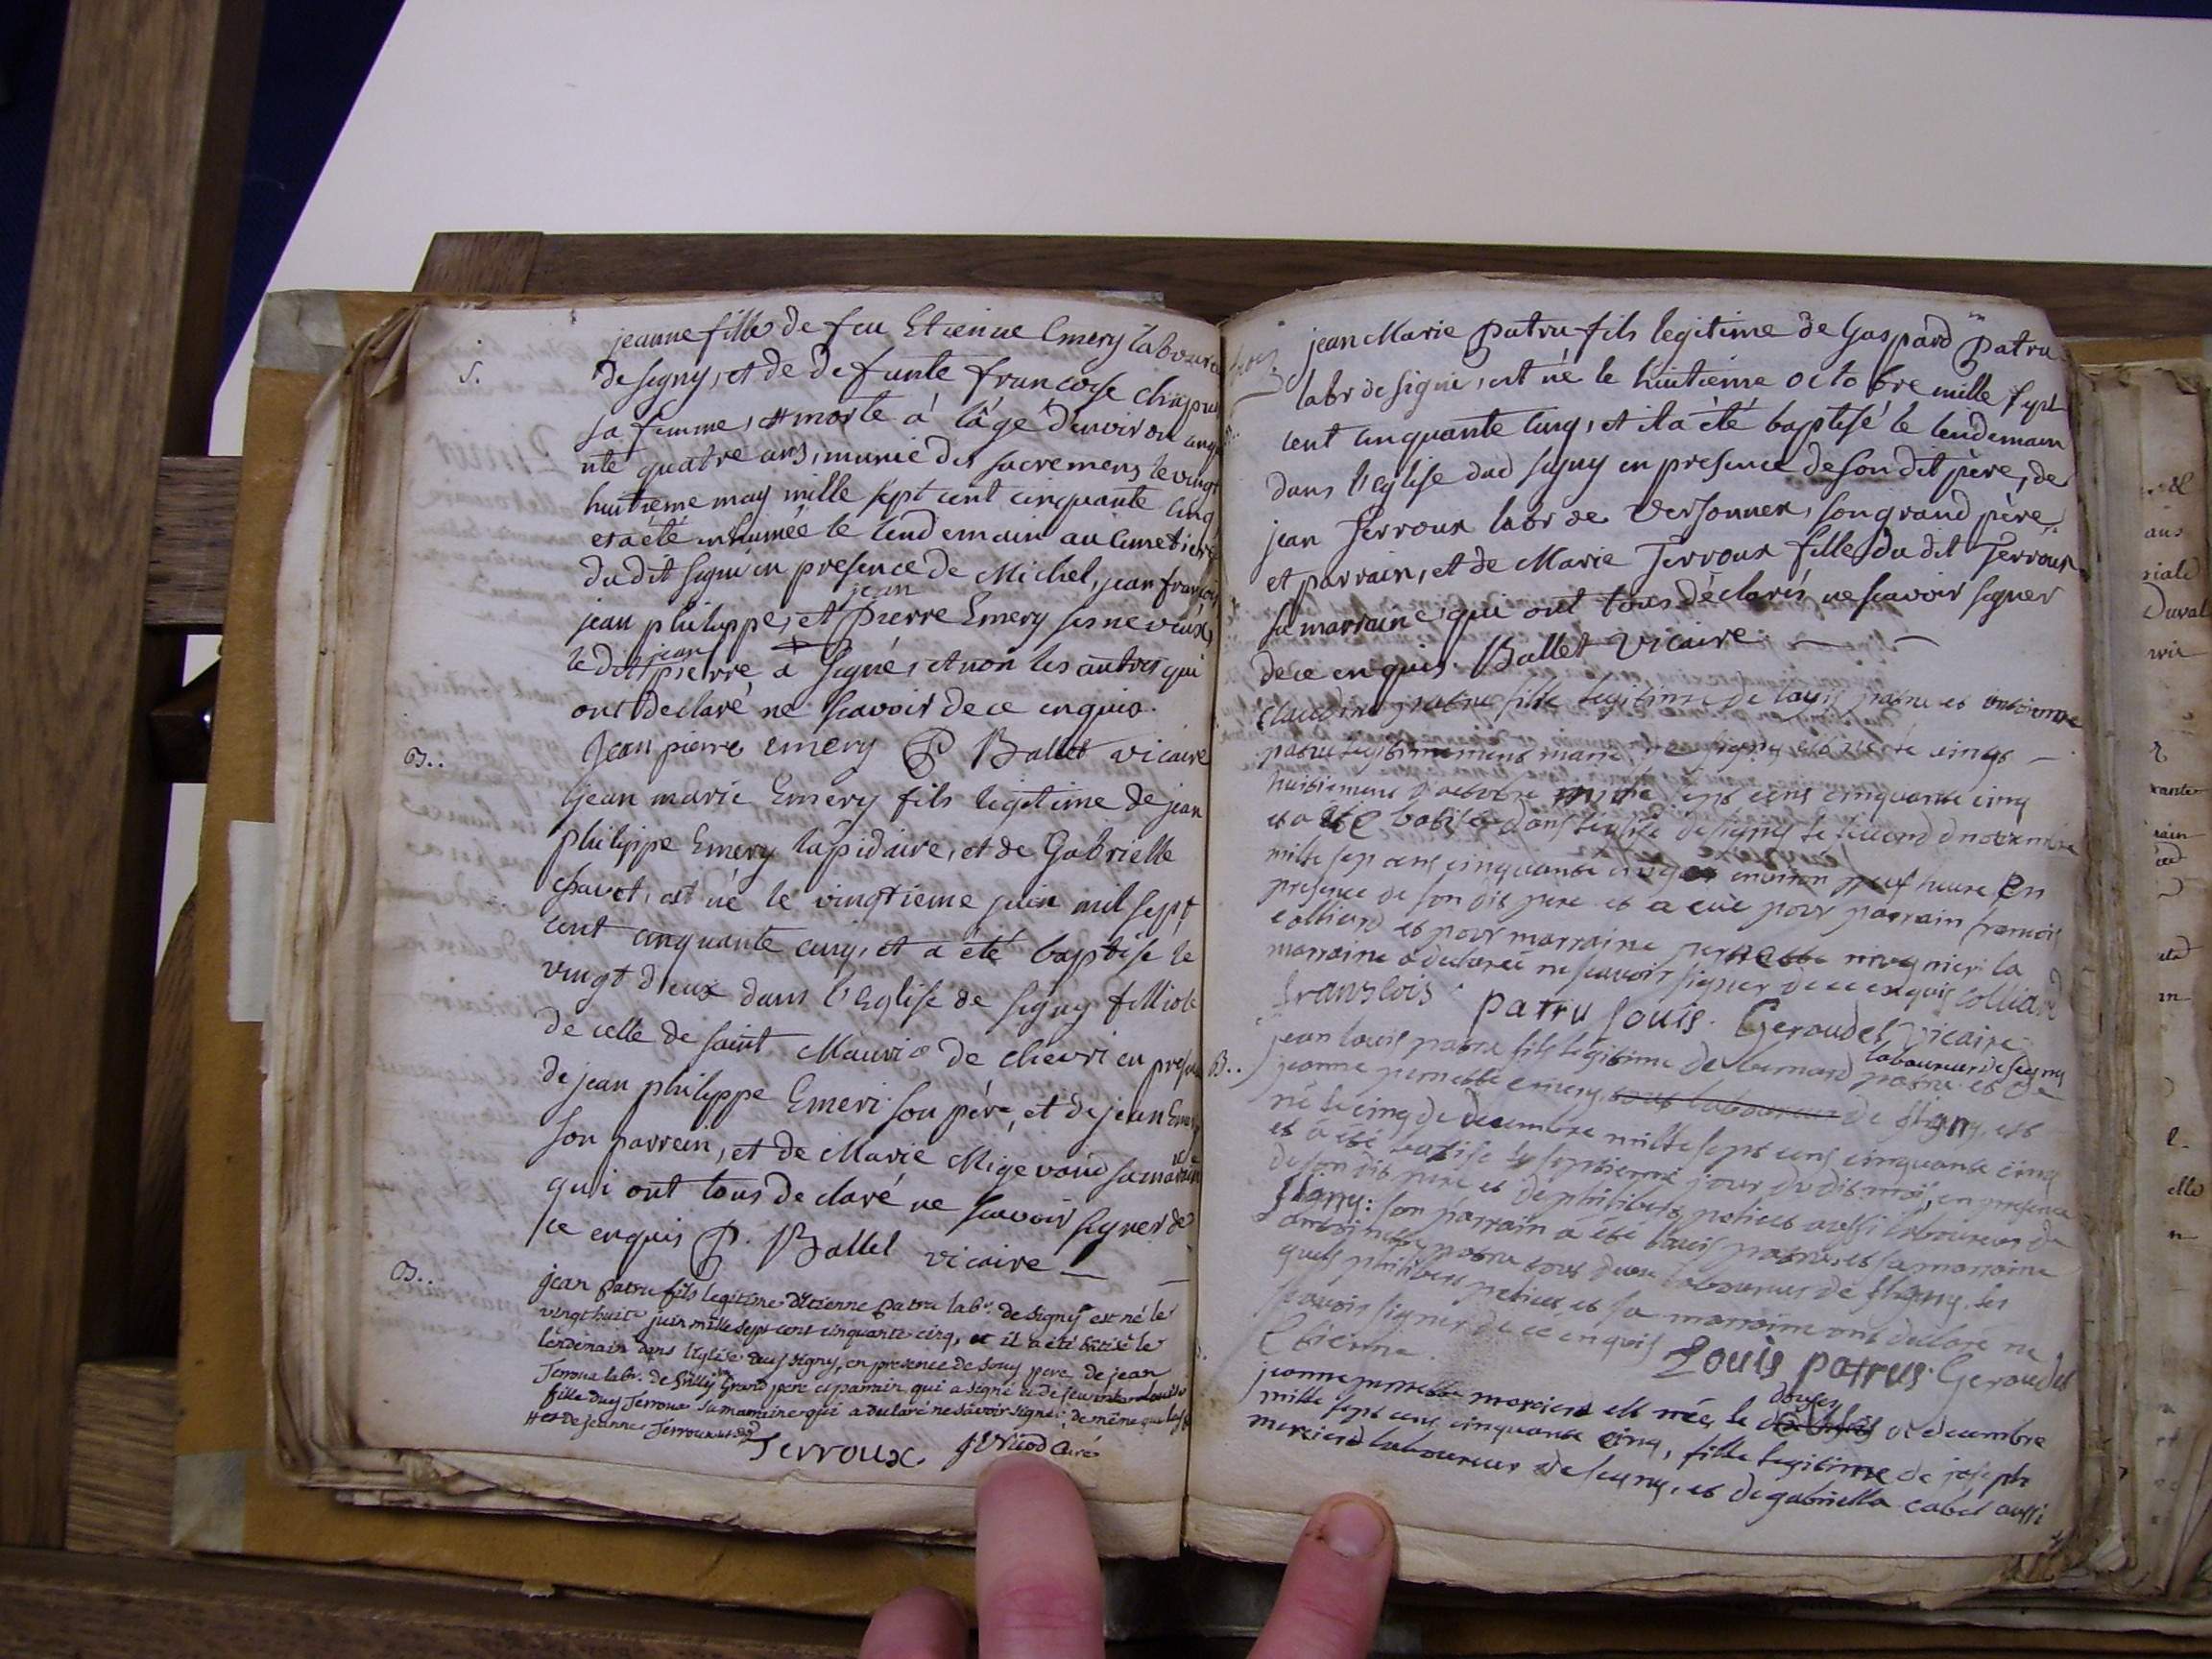 S.
jeanne fille de feu Etienne Emery laboure
de segny, et de defunte françoise
sa femme, morte à l'âgé d'environ cinqu
nte quatre ans, munie des sacremens le vingt
huitieme may mille sept cent cinquante cinq
et a été inhumée le lendemain au cimetiere
du dit signi en presence de Michel, jean françois
jean philippe, et jean Pierre Emery ses neveux,
le dit jean pierre a signé, et non les autres qui
ont declaré ne scavoir de ce enquis.
Jean pierre emery P Ballet vicaire
B..
jean marie Emery fils legitime de jean
philippe Emery lapidaire, et de Gabrielle
chavet, est né le vingtieme juin mil sept
cent cinquante cinq, et a été baptisé le
vingt deux dans l'Eglise de segny filliole
de celle de saint Maurice de chevri en presen
de jean philippe Emeri son père, et de jean Emery
son parrein, et de Marie Migevand sa marraine
qui ont tous declaré ne scavoir signer de
ce enquis P. Ballet vicaire
B..
jean patru fils legitime d'Etienne patru labr. de signy est né le
vingt huit juin mille sept cent cinquante cinq, et il a été batisé le
lendemain dans l'église dud signy, en presence de pere de jean
Terroux labr. de Grand pere et parrain qui a signé et de
fille dud Terroux sa marraine qui a declaré ne sçavoir signer, de même que
# et de jeanne Terroux
Terroux. curé
jean Marie Patru fils legitime de Gaspard Patru
labr de signi, est né le huitieme octobre mille sept
cent cinquante cinq, et il a été baptisé le lendemain
dans l'eglise dud segny en presence de son dit père, de
jean Terroux labr de Versonnex, son grand père
et parrain, et de Marie Terroux fille du dit Terroux
sa marraine qui ont tous déclarés ne scavoir signer
de ce enquis. Ballet Vicaire.
claudine patru fille legitime de louis patru et
patru legitimement marié de signy est née le vingt
huitieme d'octobre mille sept cens cinquante cinq
et a été batisée dans l'eglise de signy le second de novembre
mille sept cens cinquante cinq environ neuf heure En
presence de son dit pere et a eue pour parrain francois
colliard et pour marraine pernette la
marraine a declarée ne scavoir signer de ce enquis colliard
franscois patru louis. Geroudet Vicaire
B..
jean louis patru fils legitime de bernard patru laboureur de segny et de
jeanne pernette emery de signy, est
né le cinq de decembre mille sept cens cinquante cinq
et a été batisé le septieme jour du dit moi, en presence
de son dit pere et de philibert aussi laboureur de
signy: son parrain a été louis patru et sa marraine
patru tous deux laboureurs de signy. les
quels philibert et sa marraine ont declaré ne
scavoir signer de ce enquis Louis patrus. Geroudet
Etienne
jeanne pernette mercier est née, le douze de decembre
mille sept cens cinquante cinq, fille legitime de joseph
mercier laboureur de segny, et de gabrielle cabet aussi